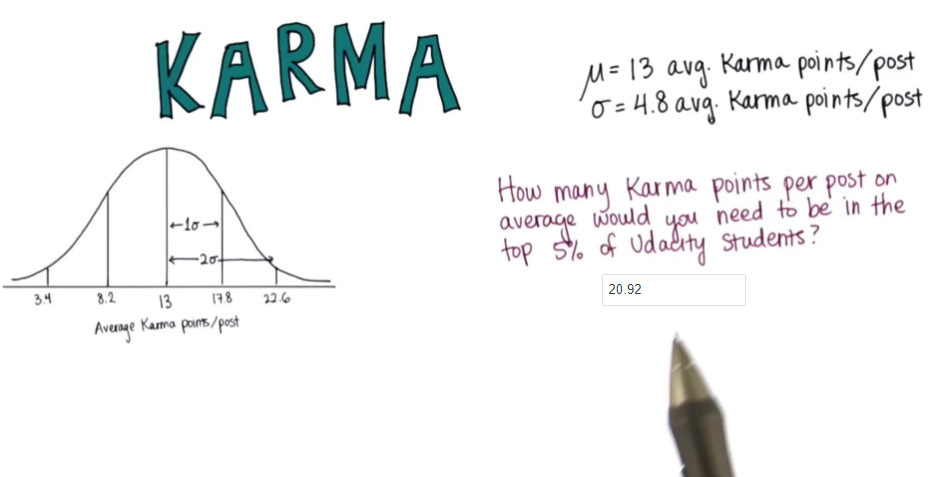 KARMA
μ = 13 avg. Karma points/post
σ = 4.8 avg. Karma points/post
←1σ→
←2σ→
3.4 8.2 13 17.8 22.6
Average Karma points/post
How many Karma points per post on
average would you need to be in the
top 5% of Udacity Students?
20.92